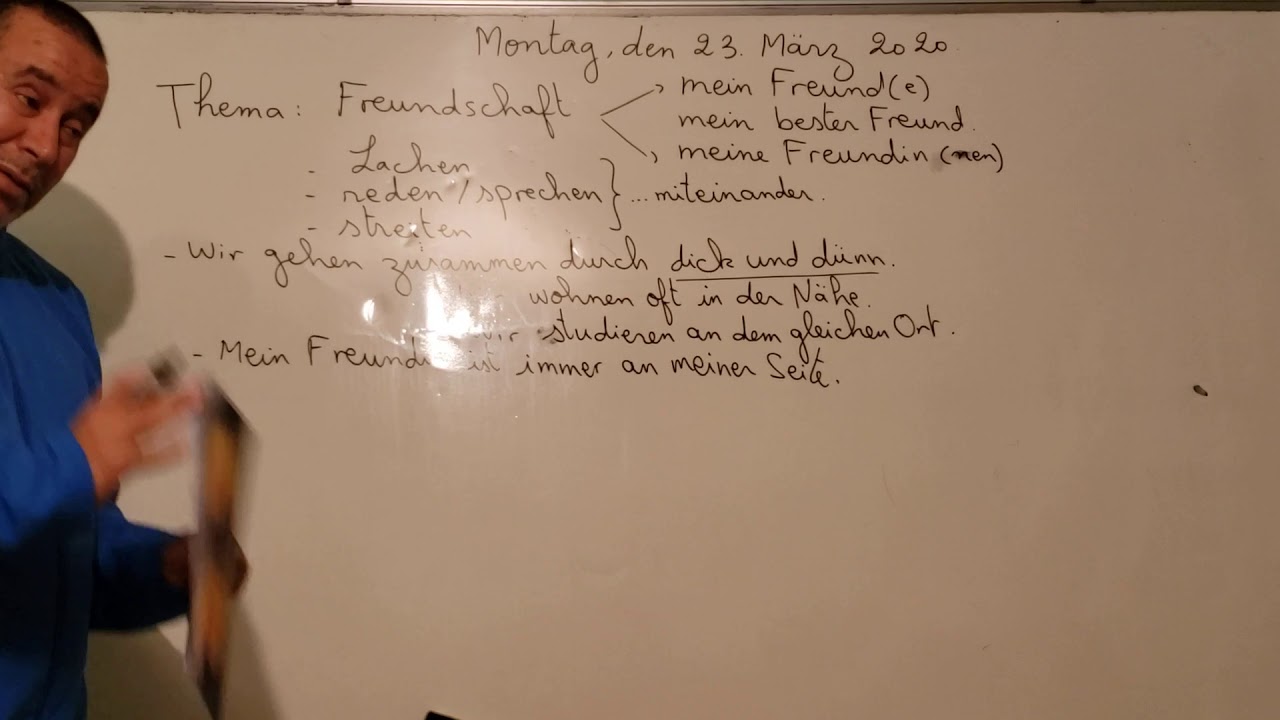 Montag, den 23. März 2020.
Thema: Freundschaft
mein Freund(e)
mein bester Freund.
meine Freundin (nen)
- Lachen
- reden / sprechen } ... miteinander.
- streiten
- Wir gehen zusammen durch dick und dünn.
wohnen oft in der Nähe.
wir studieren an dem gleichen Ort.
- Mein ist immer an meiner Seite.